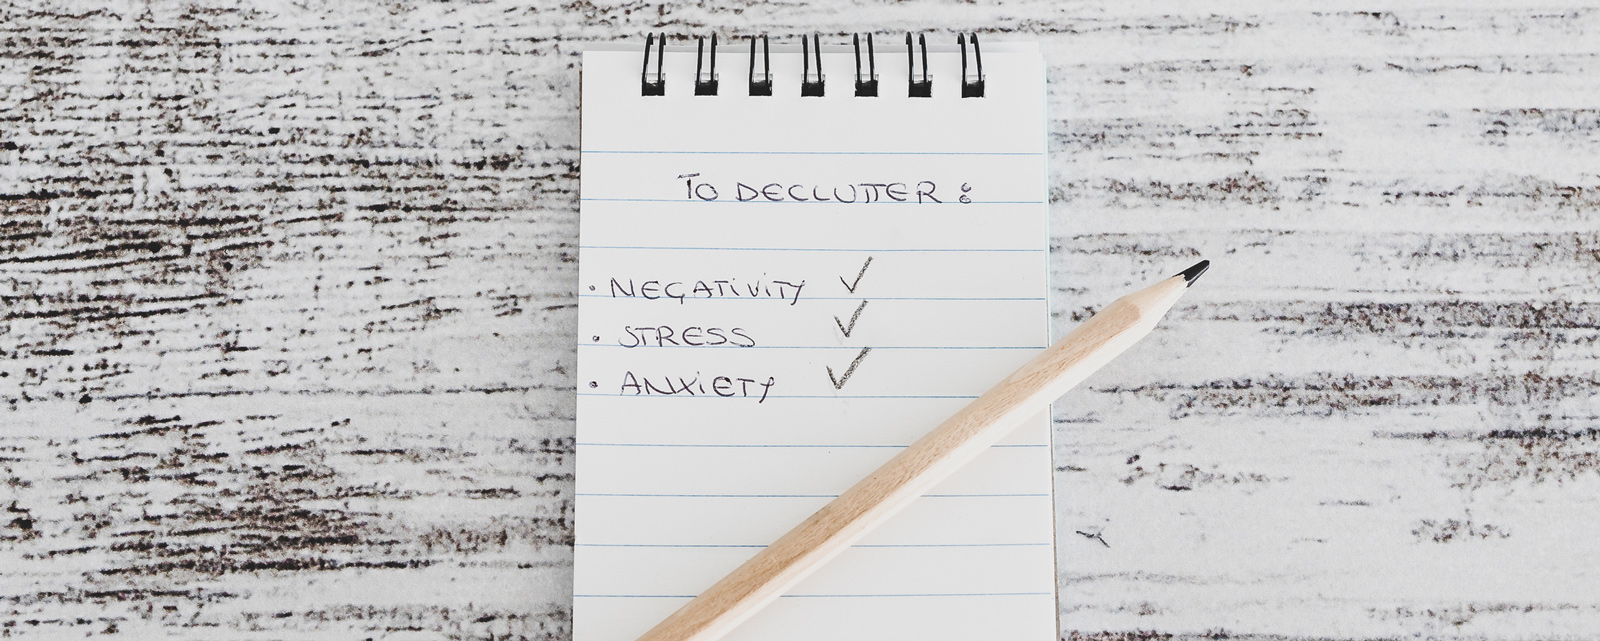 TO DECLUTTER :
· NEGATiViTY ✓
· STRESS ✓
· ANXiETY ✓